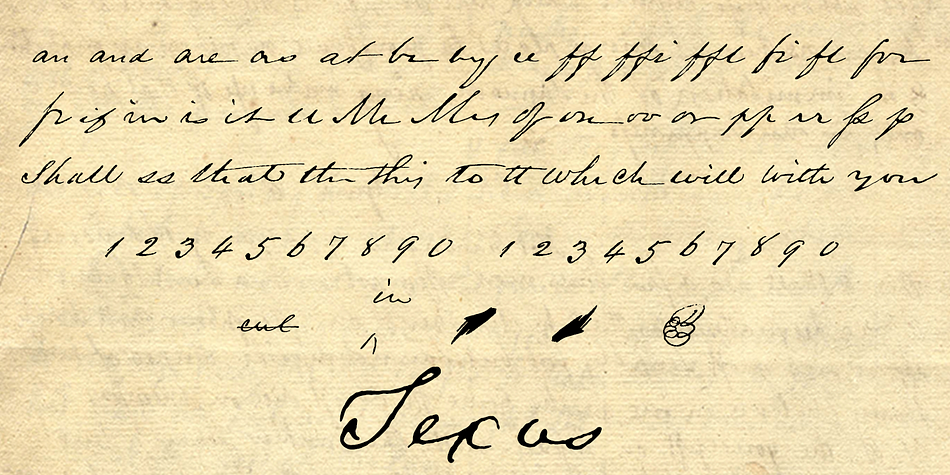 an and are as at be by ee ff ffi ffl fi fl for
fr if in is it ll Mr Mrs of on oo or pp rr ſs p
Shall ss that the this to tt which will with you
1 2 3 4 5 6 7 8 9 0 1 2 3 4 5 6 7 8 9 0
in
cut
Texas